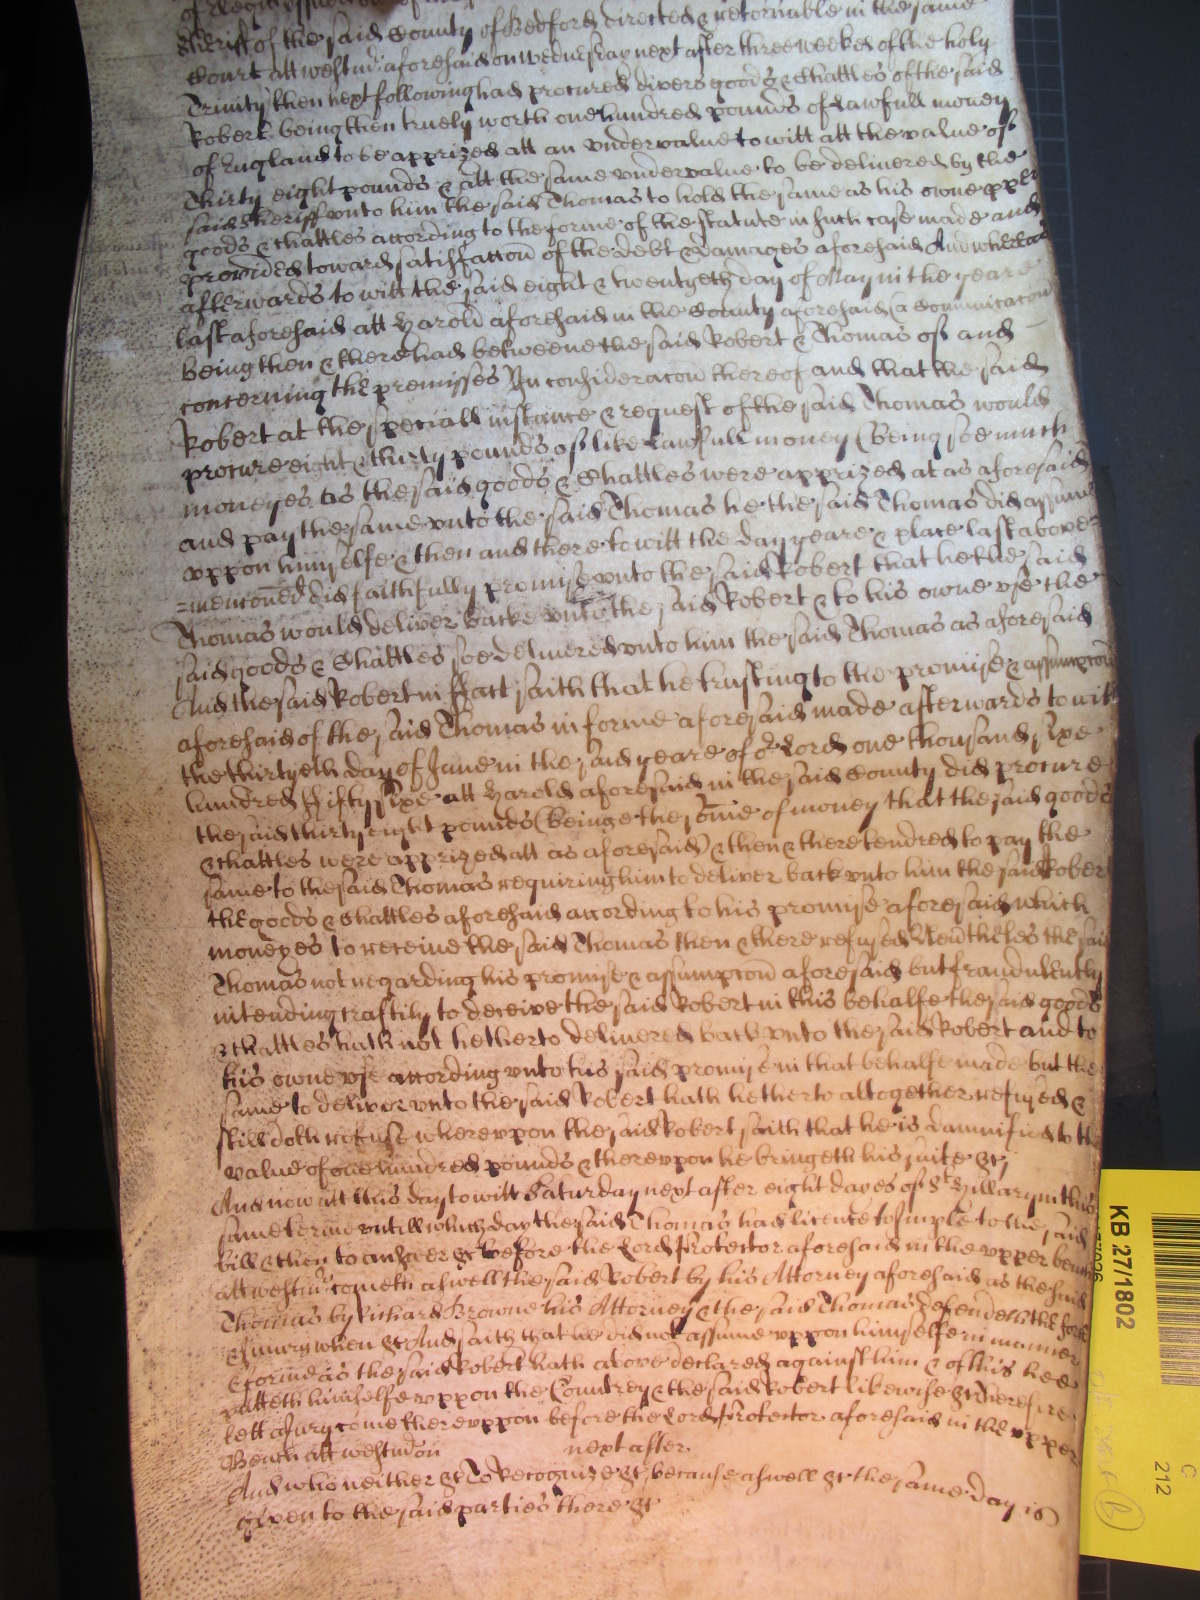 Sheriff of the said County of Bedford directed & retornable in the same
Court att westmr aforesaid on wednesday next after three weekes of the holy
Trinity then next following had procured divers goods & Chattles of the said
Robert being then truely worth one hundred pounds of lawfull money
of England to be apprized att an undervalue to witt att the value of
Thirty eight pounds & att the same undervalue to be delivered by the
said Sheriff unto him the said Thomas to hold the same as his owne pper
goods & chattles according to the forme of the statute in such case made and
provided toward satisfaccon of the debt & damages aforesaid And whereas
afterwards to witt the said eight & twentyeth day of May in the yeare
last aforesaid att Harold aforesaid in the County aforesaid (a Communicacon
being then & there had betweene the said Robert & Thomas of and
concerning the premisses In consideracon thereof and that the said
Robert at the speciall instance & request of the said Thomas would
procure eight & thirty pounds of like lawfull money (being soe much
moneyes as the said goods & Chattles were apprized at as aforesaid
and pay the same unto the said Thomas he the said Thomas did assume
uppon himselfe & then and there to witt the day yeare & place last above
=menconed did faithfully promise unto the said Robert that he the said
Thomas would deliver backe unto the said Robert & to his owne use the
said goods & Chattles soe delivered unto him the said Thomas as aforesaid
And the said Robert in ffact saith that he trusting to the promise & assumpcon
aforesaid of the said Thomas in forme aforesaid made afterwards to witt
the thirtyeth day of June in the said yeare of or Lord one thousand sixe
hundred ffifty sixe att Harold aforesaid in the said County did procure
the said thirty eight pounds (beinge the sume of money that the said goods
& chattles were apprized att as aforesaid) & then & there tendred to pay the
same to the said Thomas requiring him to deliver back unto him the said Robert
the goods & Chattles aforesaid according to his promise aforesaid which
moneyes to receive the said Thomas then & there refused Neuthelesse the said
Thomas not regarding his promise & assumpcon aforesaid but fraudulently
intending craftily to deceive the said Robert in this behalfe the said goods
& chattles hath not hetherto delivered back unto the said Robert and to
his owne use according unto his said promise in that behalfe made but the
same to deliver unto the said Robert hath hetherto altogether refused &
still doth refuse whereupon the said Robert saith that he is damnified to the
value of one hundred pounds & thereupon he bringeth his suite &c
And now att this day to witt Saturday next after eight dayes of St Hillary in this
same terme untill which day the said Thomas had licence to imple to the said
bill & then to answer &c before the Lord Protector aforesaid in the upper bench
att westmr cometh aswell the said Robert by his Attorney aforesaid as the said
Thomas by Richard Browne his Attorney & the said Thomas defendeth the force
& Iniury when &c And saith that he did not assume uppon himselfe in manner
& forme as the said Robert hath above declared against him & of this hee
putteth himselfe uppon the Countrey & the said Robert likewise &c Therefore
lett a Iury come thereuppon before the Lord Protector aforesaid in the upper
Bench att westmr on next after
And who neither &c To Recognize &c because aswell &c the same day is
given to the said parties there &c
KB 27/1802
C
212
B